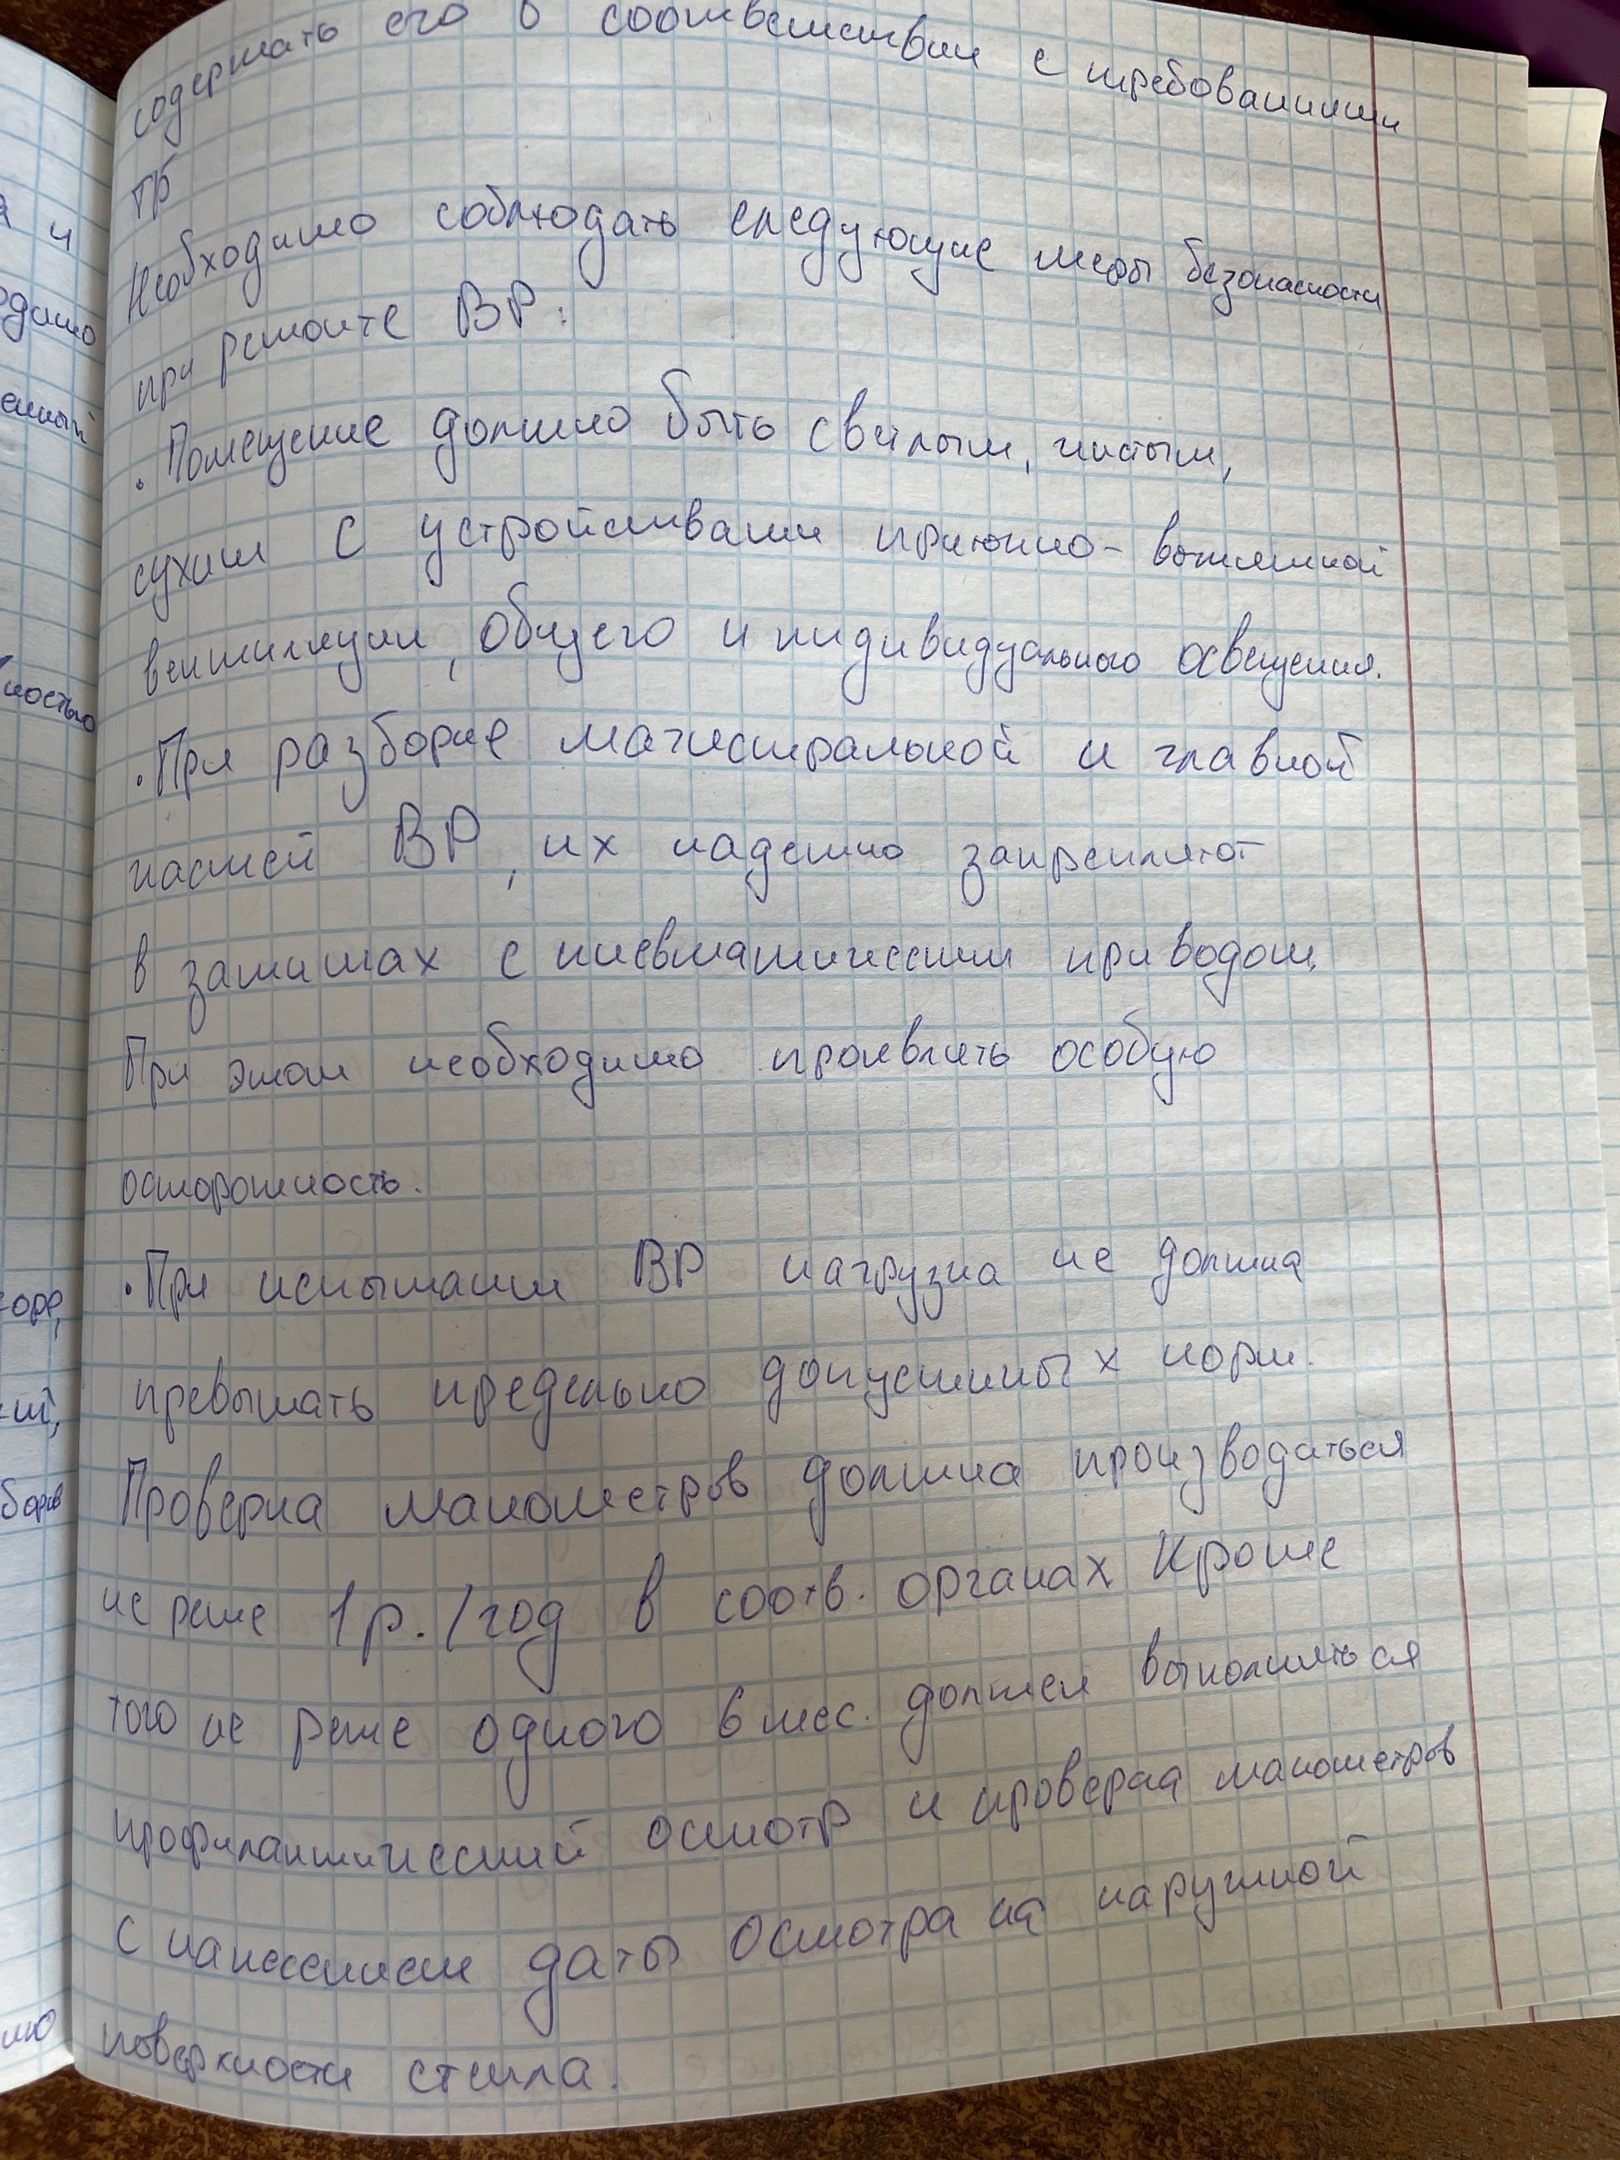 содержать его в соответствии с требованиями
ТБ
Необходимо соблюдать следующие меры безопасности
при ремонте ВР:
· Помещение должно быть светлым, чистым,
сухим с устройствами приточно-вытяжной
вентиляции, общего и индивидуального освещения.
· При разборке магистральной и главной
частей ВР, их надежно закрепляют
в зажимах с пневматическим приводом.
При этом необходимо проявлять особую
осторожность.
· При испытании ВР нагрузка не должна
превышать предельно допустимых норм.
Проверка манометров должна производиться
не реже 1р./год в соотв. органах Кроме
того не реже одного 6 мес. должен выполняться
профилактический осмотр и проверка манометров
с нанесением даты осмотра на наружной
поверхности стекла.
а и
одимо
енный
ностью
боров